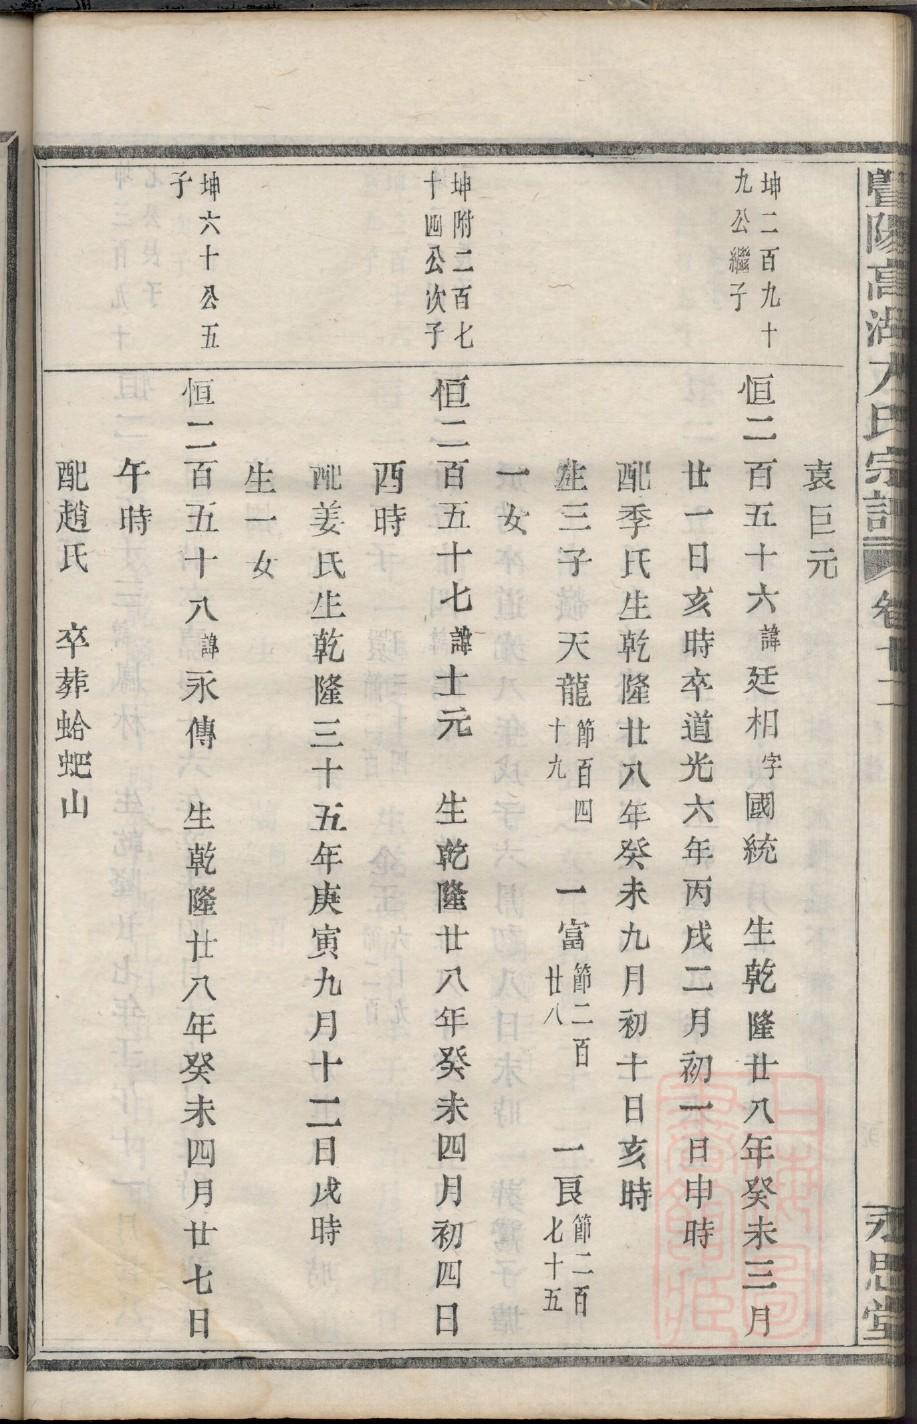 暨陽高湖人氏宗譜 卷十二 永思堂
袁巨元
坤二百九十
九公繼子
恒二百五十六諱廷相字國統 生乾隆廿八年癸未三月
廿一日亥時卒道光六年丙戌二月初一日申時
配季氏生乾隆廿八年癸未九月初十日亥時
生三子 天龍節百四十九 一富節二百廿八 一良節二百七十五
一女
坤附二百七
十四公次子
恒二百五十七諱士元 生乾隆廿八年癸未四月初四日
酉時
配姜氏生乾隆三十五年庚寅九月十二日戌時
生一女
坤六十公五
子
恒二百五十八諱永傳 生乾隆廿八年癸未四月廿七日
午時
配趙氏 卒葬蛤蚆山